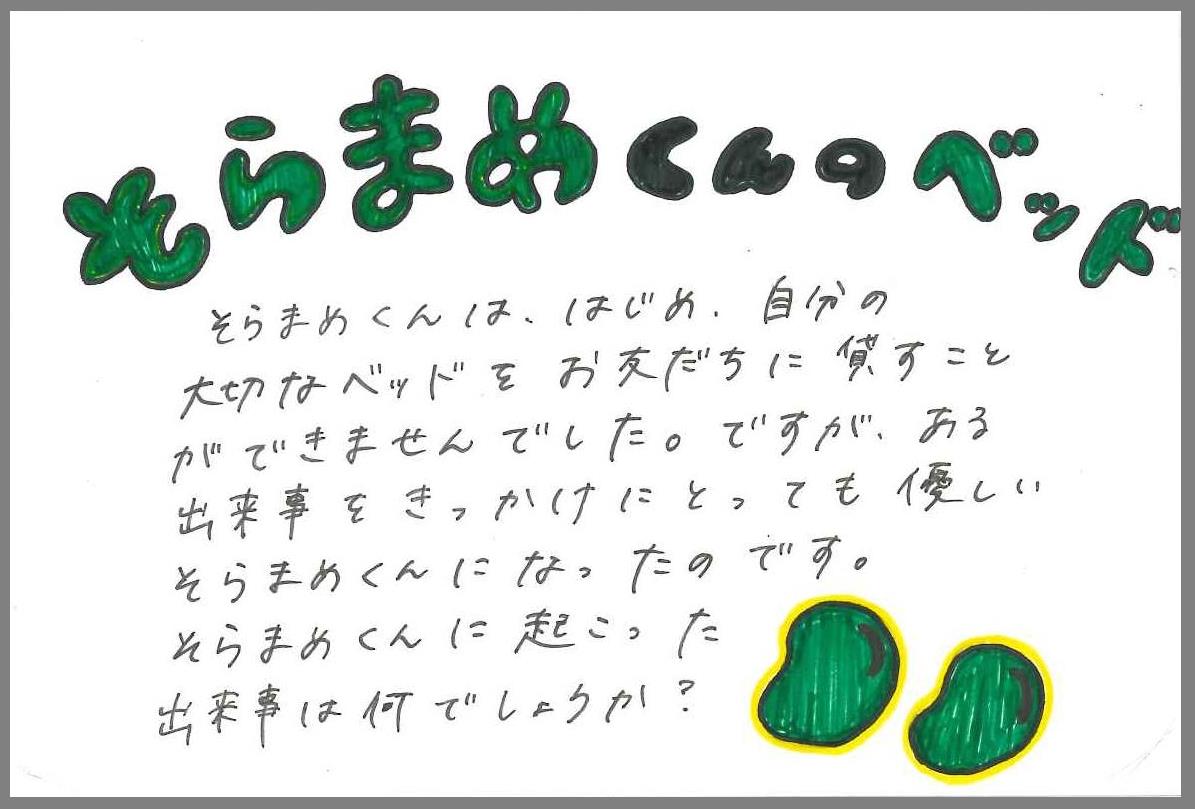 そらまめくんのベッド
そらまめくんは、はじめ、自分の
大切なベッドをお友だちに貸すこと
ができませんでした。ですが、ある
出来事をきっかけにとっても優しい
そらまめくんになったのです。
そらまめくんに起こった
出来事は何でしょうか?